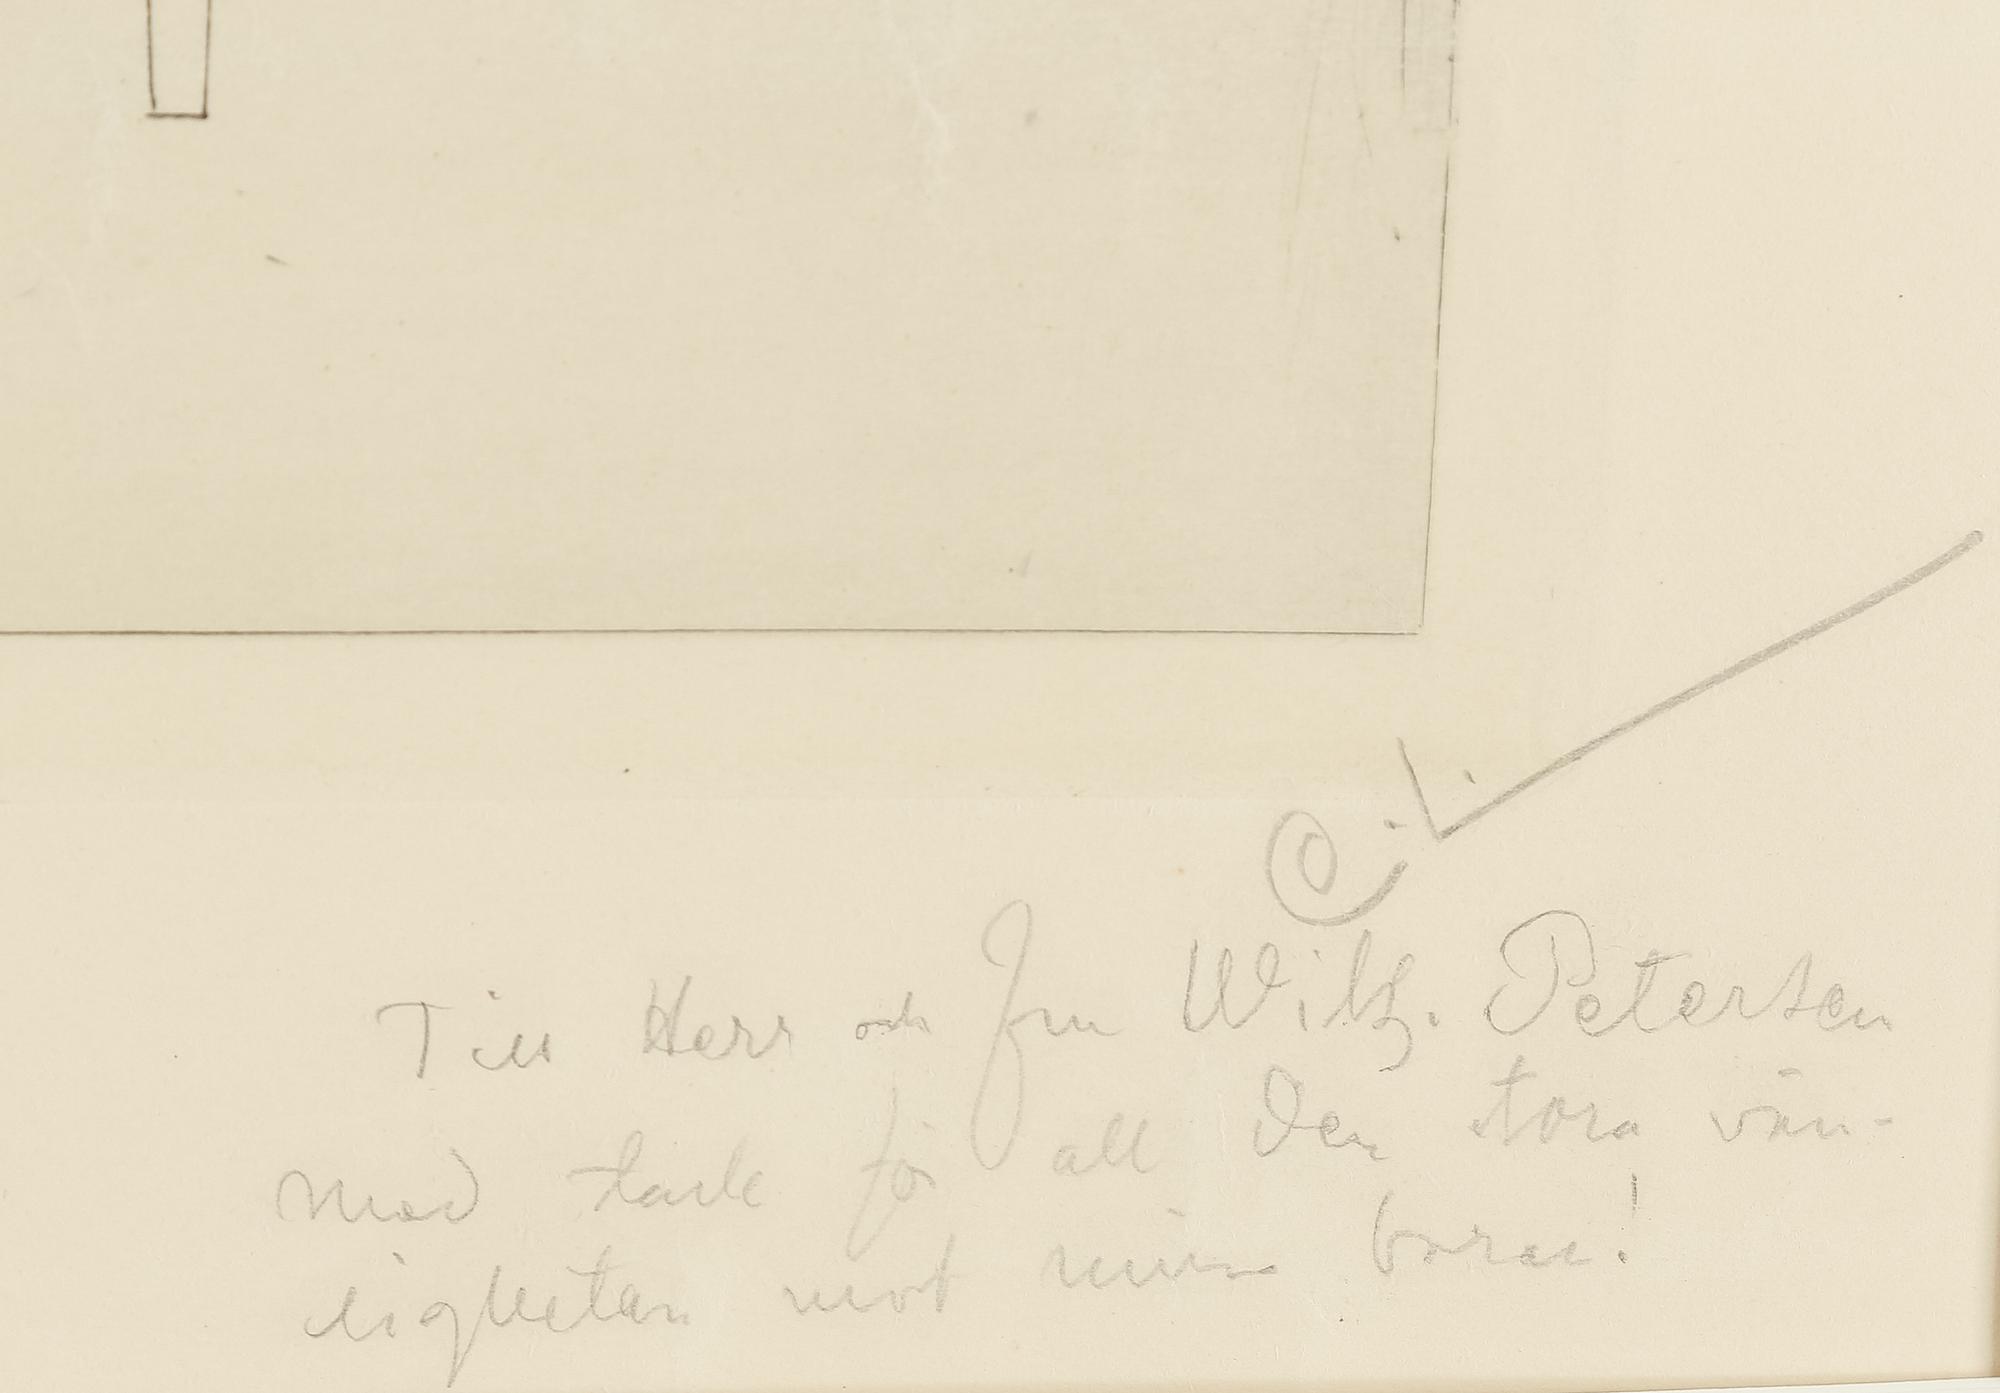 C.L.
Till Herr och Fru Wilh. Petersen
med tack för all den stora vän-
ligheten mot mina barn!